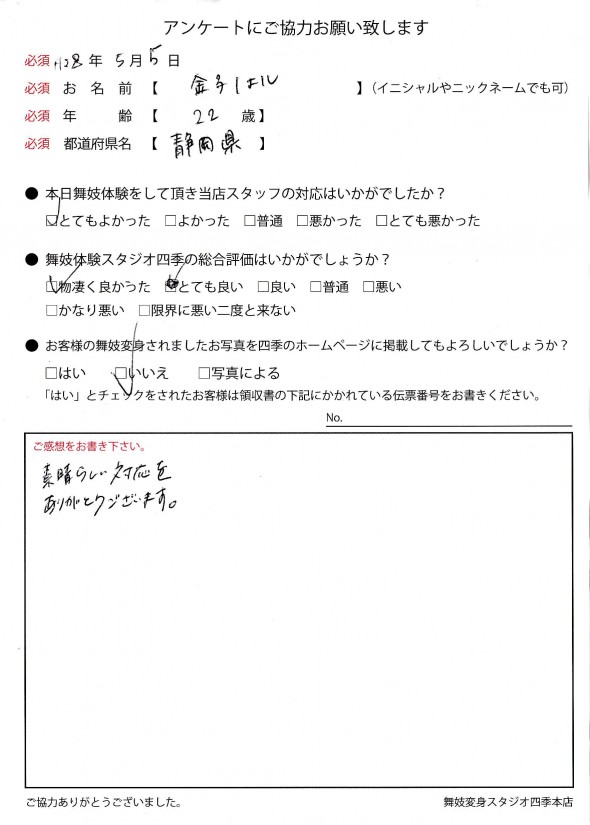 アンケートにご協力お願い致します
必須 H28年 5月 5日
必須 お名前 【 金子 】（イニシャルやニックネームでも可）
必須 年 齢 【 22 歳】
必須 都道府県名 【 静岡県 】
● 本日舞妓体験をして頂き当店スタッフの対応はいかがでしたか？
☑とてもよかった □よかった □普通 □悪かった □とても悪かった
● 舞妓体験スタジオ四季の総合評価はいかがでしょうか？
☑物凄く良かった ■とても良い □良い □普通 □悪い
□かなり悪い □限界に悪い二度と来ない
● お客様の舞妓変身されましたお写真を四季のホームページに掲載してもよろしいでしょうか？
□はい ☑いいえ □写真による
「はい」とチェックをされたお客様は領収書の下記にかかれている伝票番号をお書きください。
No.
ご感想をお書き下さい。
素晴らしい対応を
ありがとうございます。
ご協力ありがとうございました。
舞妓変身スタジオ四季本店